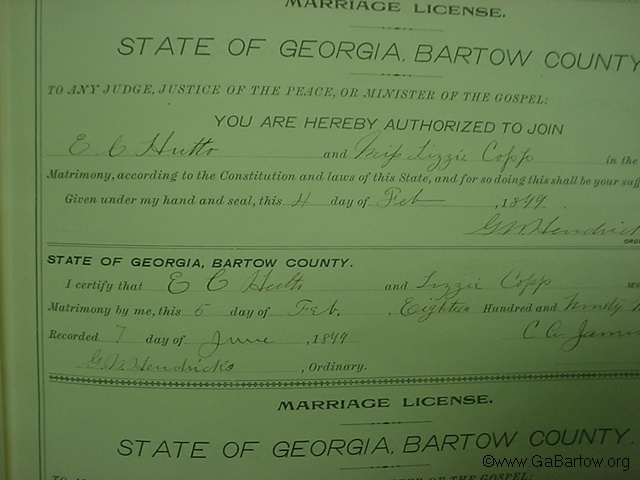 MARRIAGE LICENSE.
STATE OF GEORGIA, BARTOW COUNTY
TO ANY JUDGE, JUSTICE OF THE PEACE, OR MINISTER OF THE GOSPEL:
YOU ARE HEREBY AUTHORIZED TO JOIN
E C Hutto and Miss Lizzie Copp in the
Matrimony, according to the Constitution and laws of this State, and for so doing this shall be your suf
Given under my hand and seal, this 4 day of Feb , 1899
G W Hendrick
ORD
STATE OF GEORGIA, BARTOW COUNTY.
I certify that E C Hutto and Lizzie Copp we
Matrimony by me, this 5 day of Feb. , Eighteen Hundred and Ninety N
Recorded 7 day of June , 1899 C A
G W Hendricks , Ordinary.
MARRIAGE LICENSE.
STATE OF GEORGIA, BARTOW COUNTY.
TO THE GOSPEL:
©www.GaBartow.org